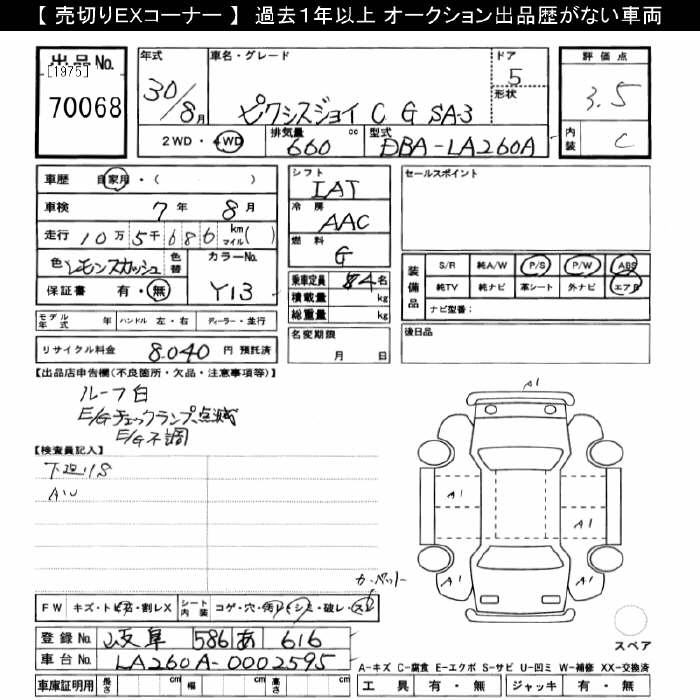 【 売切りEXコーナー 】 過去１年以上 オークション出品歴がない車両
出品No.
[1975]
70068
年式
30/8月
車名・グレード
ピクシスジョイ C G SA3
ドア
5
形状
評価点
3.5
内装
C
2WD・4WD
排気量
660
cc
型式
DBA-LA260A
車歴 自家用・( )
車検 7年 8月
走行 10万5千686 km マイル( )
色 レモンスカッシュ
色替
カラーNo.
Y13
保証書 有・無
シフト
IAT
冷房
AAC
燃料
G
乗車定員 4名
積載量 kg
総重量 kg
名変期限
月 日
セールスポイント
装備品
S/R 純A/W P/S P/W ABS
純TV 純ナビ 革シート 外ナビ エアB
ナビ型番：
後日品
モデル年式 年 ハンドル 左・右 ディーラー・並行
リサイクル料金 8,040 円 預託済
【出品店申告欄(不良箇所・欠品・注意事項等)】
ルーフ白
E/Gチェックランプ点滅
E/G不調
【検査員記入】
下廻りS
AW
A1
A1
A1
A1
A1
カーペット
FW キズ・トビ石・割レX シート内装 コゲ・穴・汚レ・シミ・破レ・スレ
スペア
登録No. 岐阜 586 あ 616
車台No. LA260A-0002595
A-キズ C-腐食 E-エクボ S-サビ U-凹ミ W-補修 XX-交換済
車庫証明用 長さ cm 幅 cm 高さ cm
工具 有・無 ジャッキ 有・無